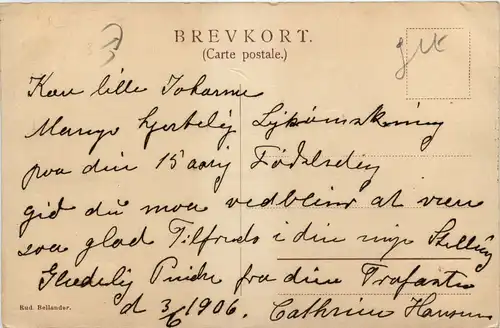 BREVKORT.
(Carte postale.)
Kære lille Johanne
Mange hjertelig Lykønskning
paa din 15 aarig Fødselsdag
gid du maa vedblive at være
saa glad Tilfreds i din nye Stilling
Glædelig Pindse fra dine
d 3/6 1906. Cathrine Hansen
Eud. Bellander.